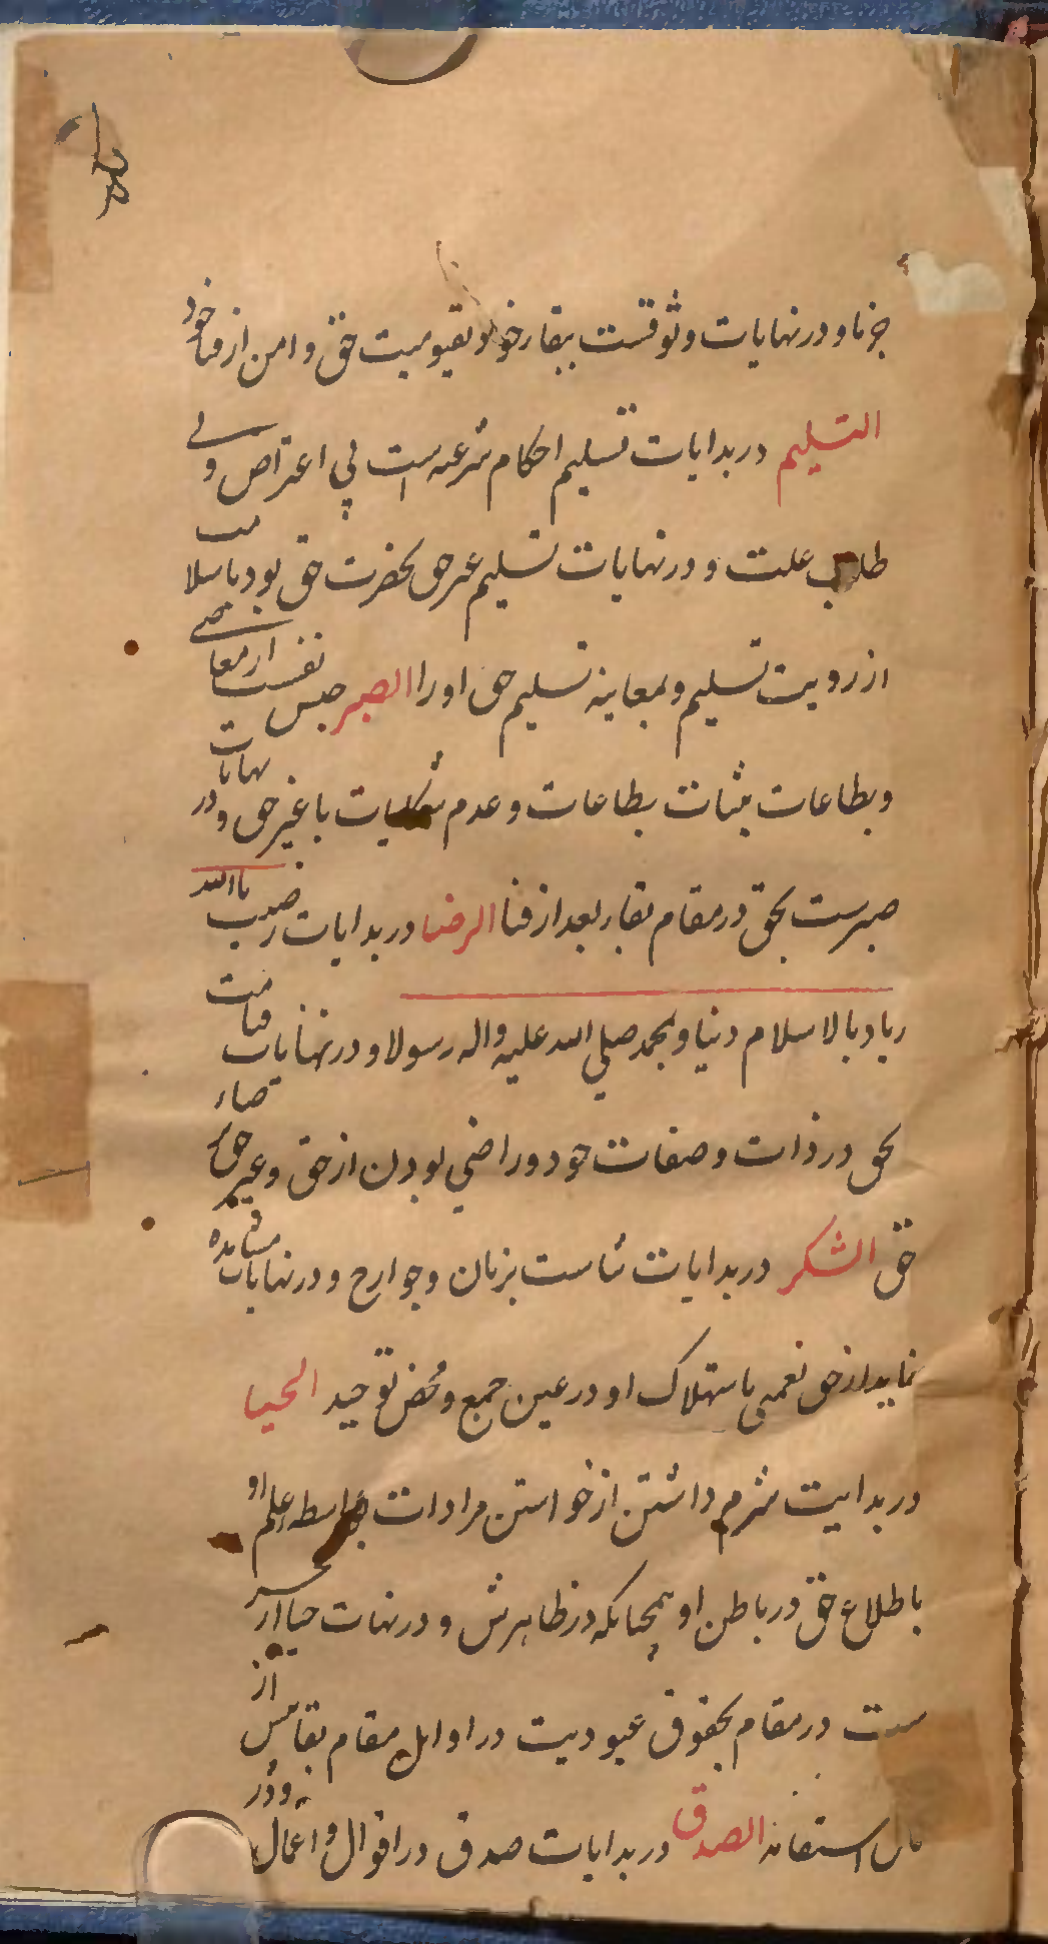 جزنا و در نهایات وثوقست ببقاء خود بقیومیت حق و امن از فنا خود
التسلیم در بدایات تسلیم احکام شرعیه است بی اعتراض و بی
طلب علت و در نهایات تسلیم غیر حق بحضرت حق بود با سلامت
از رویت تسلیم و بمعاینه تسلیم حق او را الصبر حبس نفست از معاصی
و بطاعات بثبات بطاعات و عدم شکایات با غیر حق و در نهایات
صبرست بحق در مقام بقاء بعد از فنا الرضا در بدایات رضیت باالله
ربا و بالاسلام دینا و بمحمد صلی الله علیه واله رسولا و در نهایات قیامت
بحق در ذات و صفات خود و راضی بودن از حق و غیر حق
حق الشکر در بدایات ثناست بزبان و جوارح و در نهایات مشاهده
نماید از حق نعمه باستهلاک او در عین جمع و محض توحید الحیا
در بدایت شرم داشتن از خواستن مرادات بواسطه علم او
باطلاع حق در باطن او همچنانکه در ظاهرش و در نهات حیا از
ست در مقام بحقوق عبودیت در اوایل مقام بقا پس از
استقامة الصدق در بدایات صدق در اقوال و اعمال و در